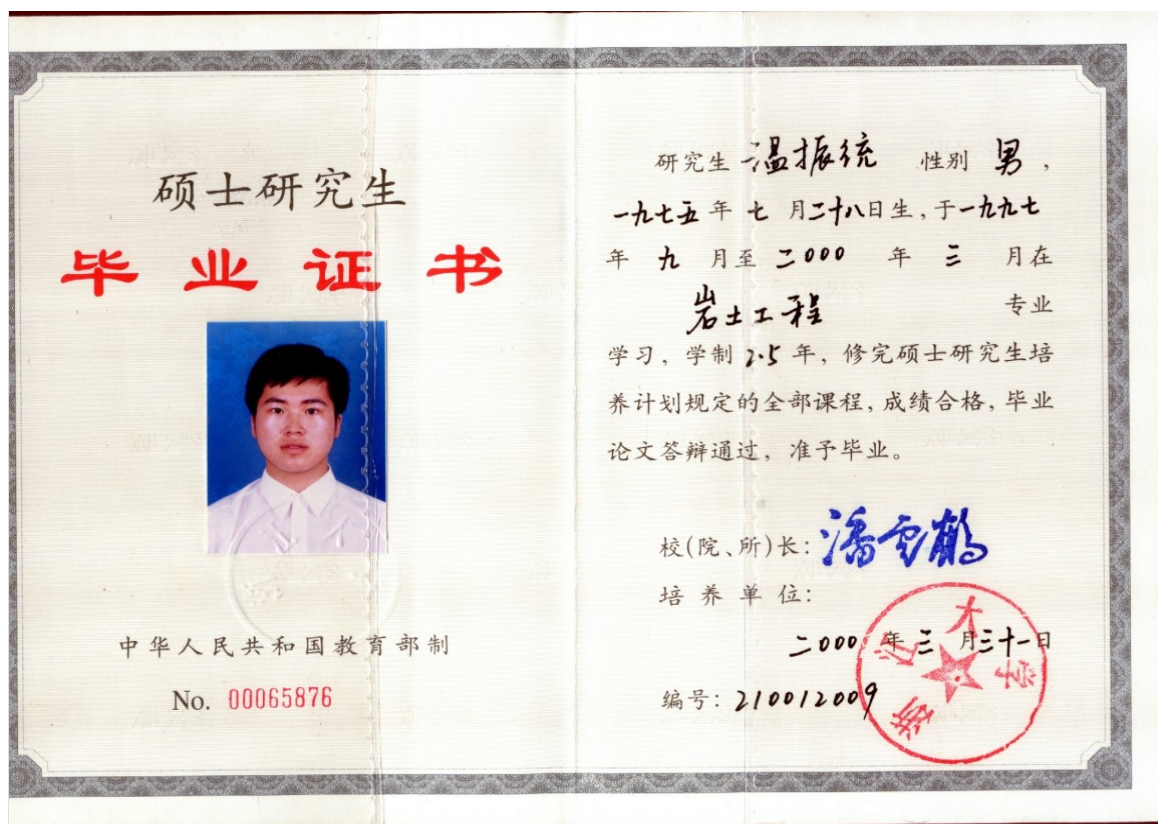 硕士研究生
毕业证书
中华人民共和国教育部制
No. 00065876
研究生 温振统 性别 男，
一九七五年 七 月二十八日生，于一九九七
年 九 月至 二000 年 三 月在
岩土工程 专业
学习，学制 2.5 年，修完硕士研究生培
养计划规定的全部课程，成绩合格，毕业
论文答辩通过，准予毕业。
校(院、所)长：潘云鹤
培养单位：
浙江大学
二000 年 三 月三十一日
编号：210012009